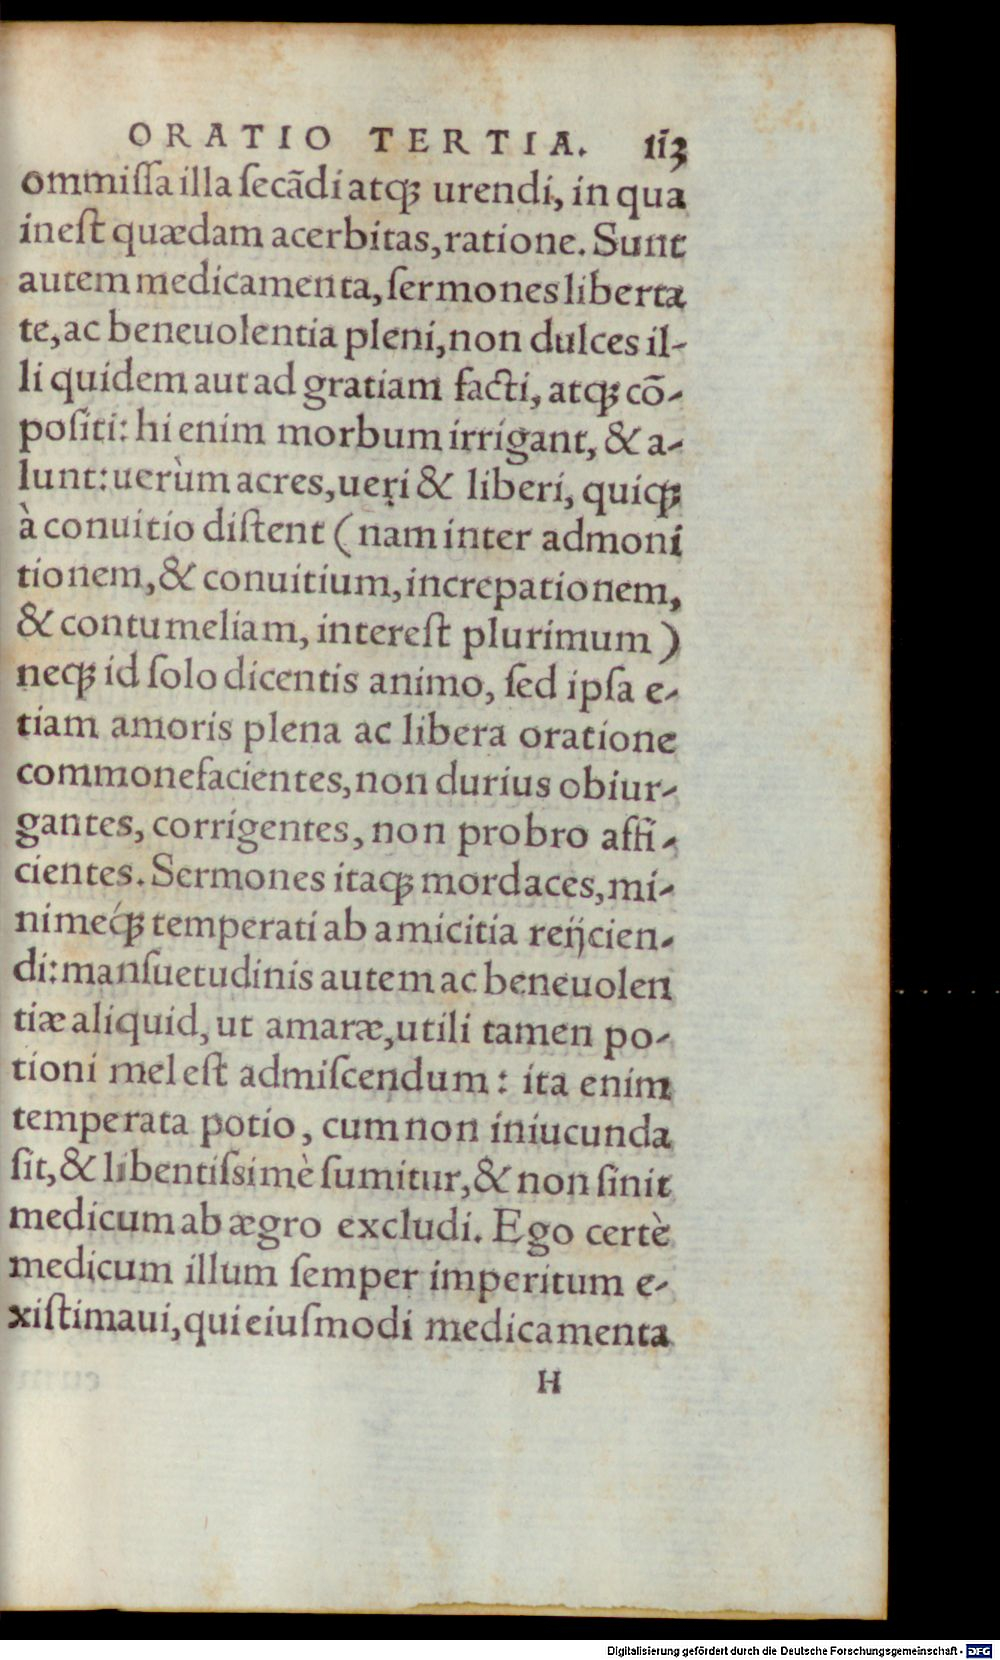 ORATIO TERTIA. 113
ommiſſa illa ſecãdi atqꝫ urendi, in qua
ineſt quædam acerbitas, ratione. Sunt
autem medicamenta, ſermones liberta
te, ac beneuolentia pleni, non dulces il-
li quidem aut ad gratiam facti, atqꝫ cõ-
poſiti: hi enim morbum irrigant, & a-
lunt: uerùm acres, ueri & liberi, quiqꝫ
à conuitio diſtent (nam inter admoni
tionem, & conuitium, increpationem,
& contumeliam, intereſt plurimum)
neqꝫ id ſolo dicentis animo, ſed ipſa e-
tiam amoris plena ac libera oratione
commonefacientes, non durius obiur-
gantes, corrigentes, non probro affi-
cientes. Sermones itaqꝫ mordaces, mi-
nimeq́ꝫ temperati ab amicitia reijcien-
di: manſuetudinis autem ac beneuolen
tiæ aliquid, ut amaræ, utili tamen po-
tioni mel eſt admiſcendum: ita enim
temperata potio, cum non iniucunda
ſit, & libentiſsimè ſumitur, & non ſinit
medicum ab ægro excludi. Ego certè
medicum illum ſemper imperitum e-
xiſtimaui, qui eiuſmodi medicamenta
H
Digitalisierung gefördert durch die Deutsche Forschungsgemeinschaft - DFG